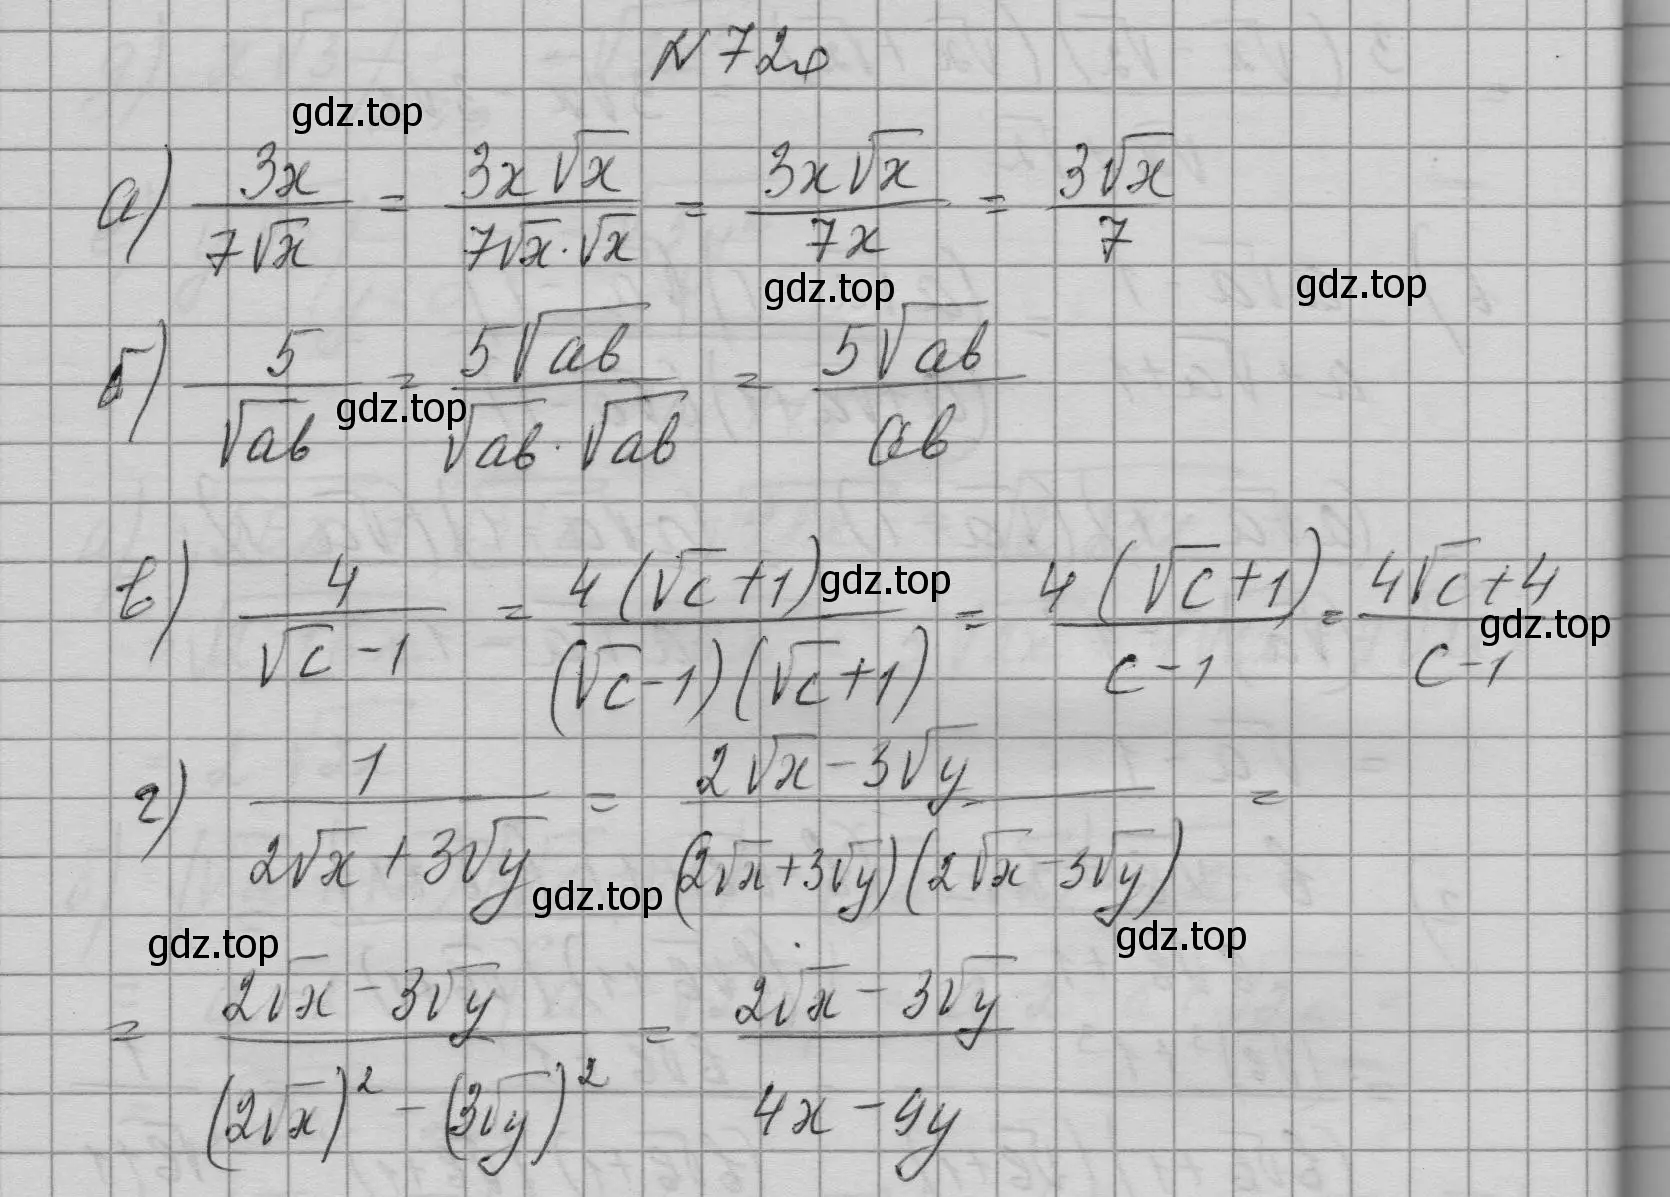 N 728
gdz.top
а) 3x/(7√x) = (3x√x)/(7√x·√x) = (3x√x)/(7x) = (3√x)/7
gdz.top gdz.top
б) 5/√ab = (5√ab)/(√ab·√ab) = (5√ab)/(ab)
gdz.top
в) 4/(√c-1) = (4(√c+1))/((√c-1)(√c+1)) = (4(√c+1))/(c-1) = (4√c+4)/(c-1)
gdz.top gdz.top
г) 1/(2√x+3√y) = (2√x-3√y)/((2√x+3√y)(2√x-3√y)) =
gdz.top gdz.top gdz.top
= (2√x-3√y)/((2√x)²-(3√y)²) = (2√x-3√y)/(4x-9y)